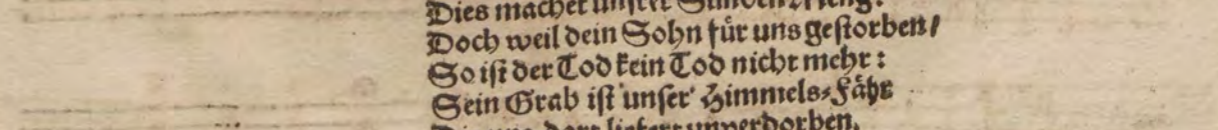 Dies machet unsrer Sünden Meng:
Doch weil dein Sohn für uns gestorben/
So ist der Tod kein Tod nicht mehr:
Sein Grab ist unser' Himmels-Fähr
Die uns dort liefert unverdorben.